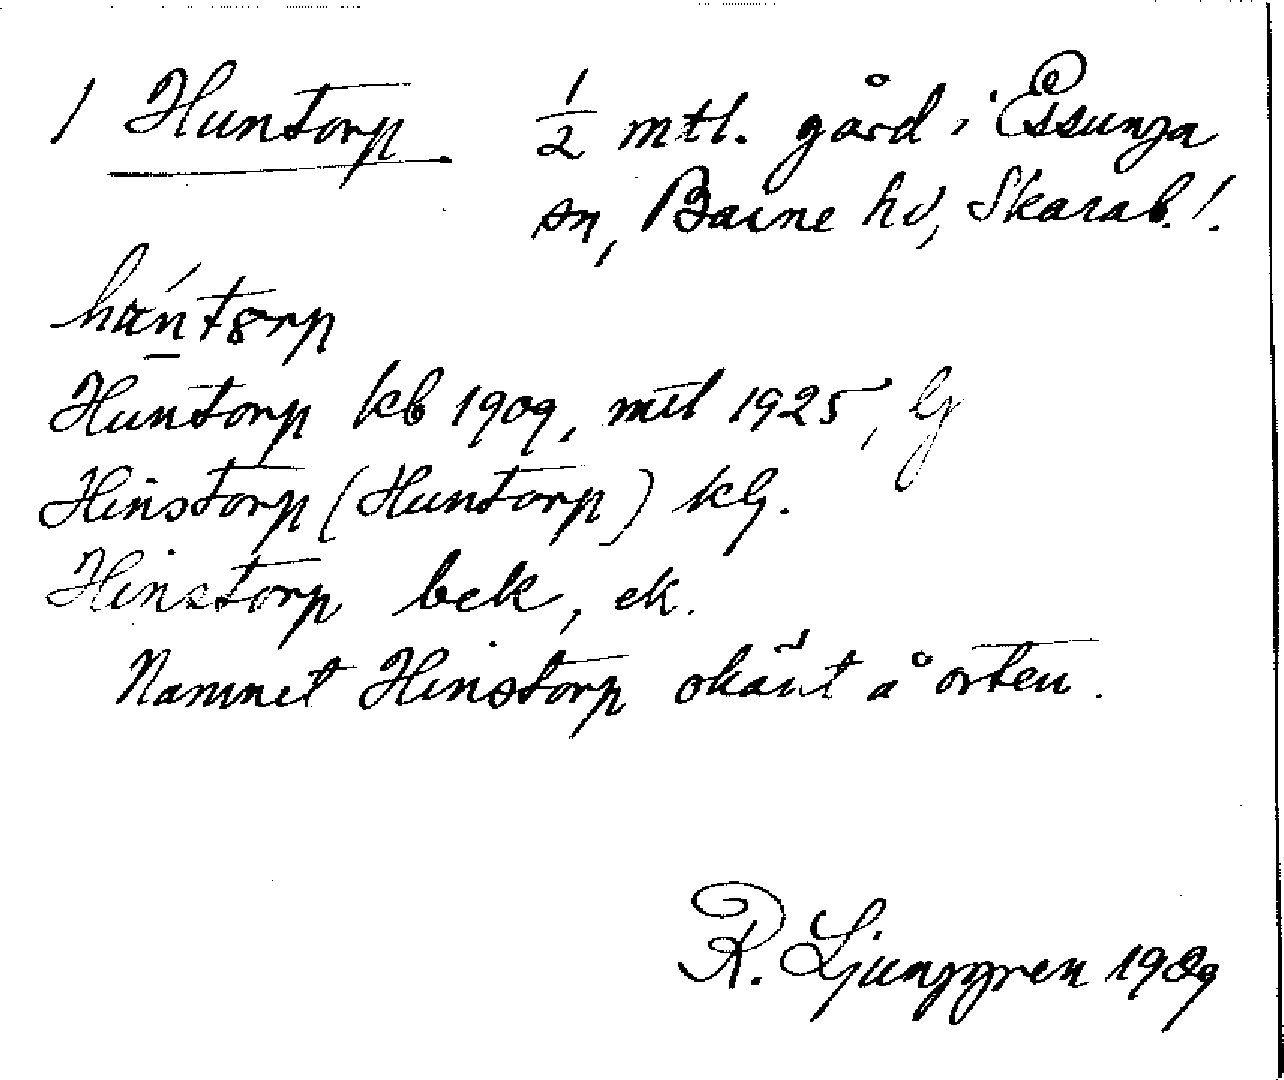 1 Huntorp 1/2 mtl. gård i Essunga
sn, Barne hd, Skarab. l.
Huntorp kb 1909, mtl 1925, G
Hinstorp (Huntorp) kG.
Hinstorp bek, ek.
Namnet Hinstorp okänt å orten.
R. Ljunggren 1909